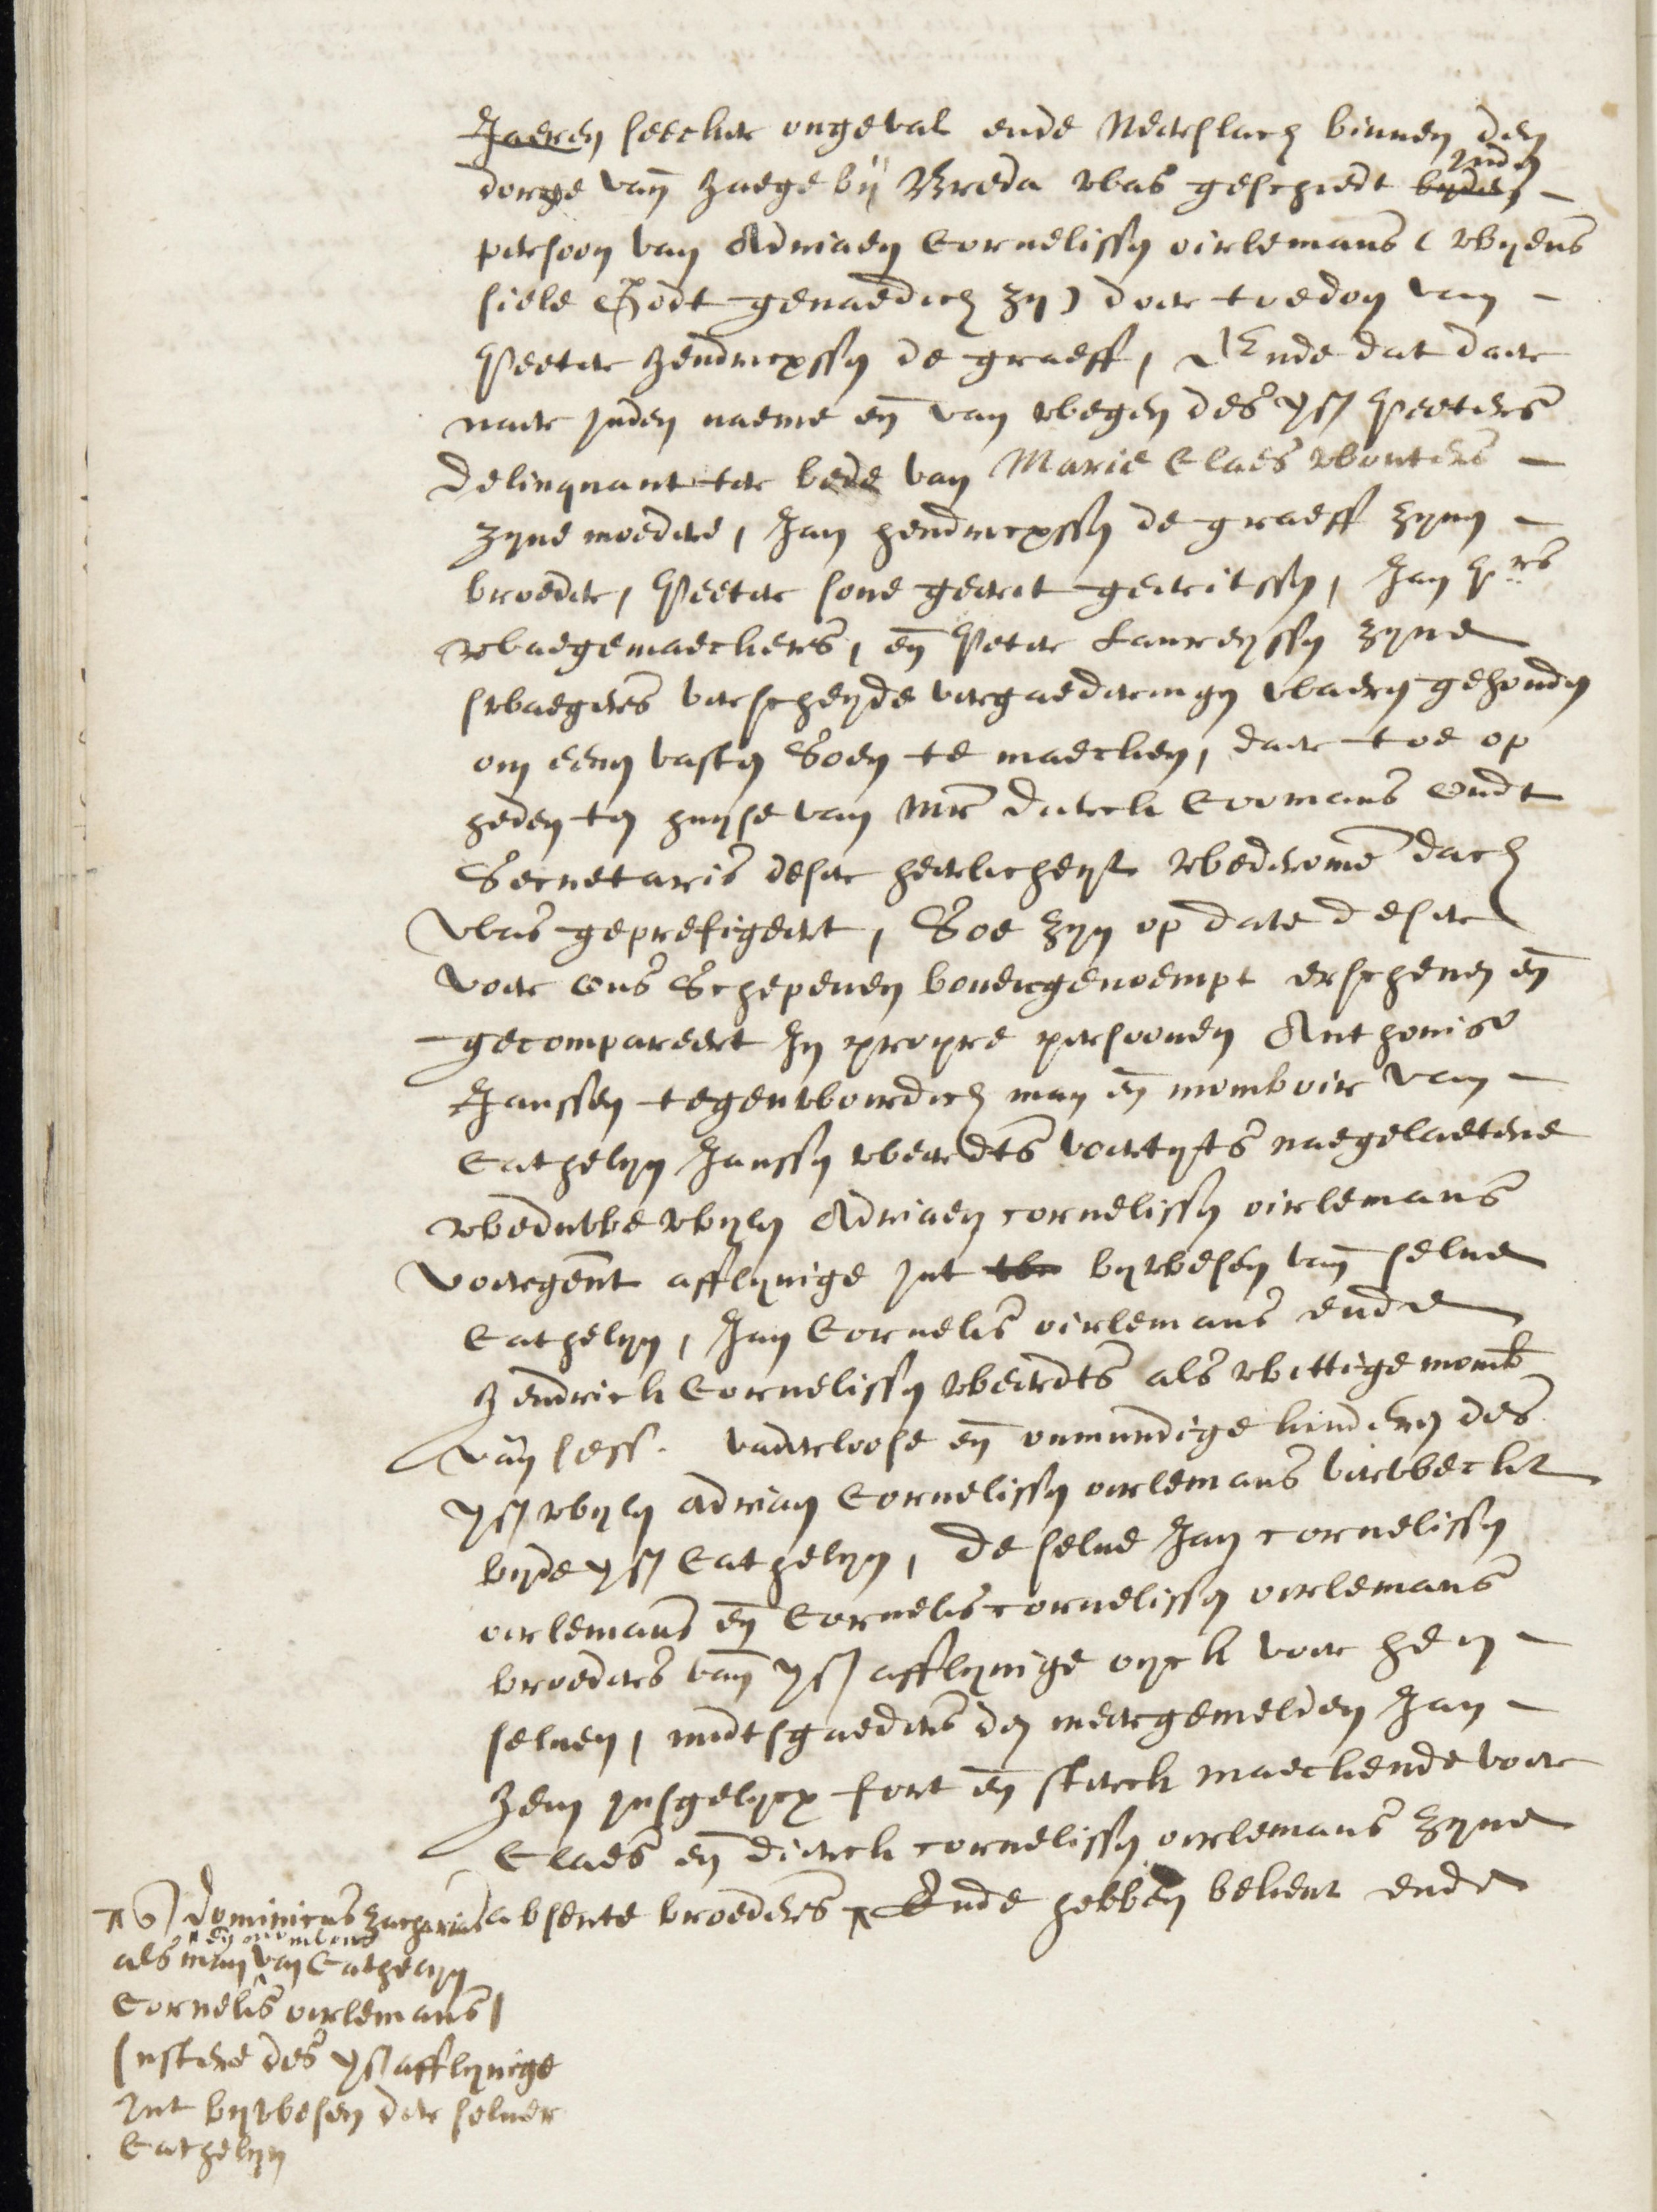 Jaeren seecker ongeval ende Neerslach binnen den
dorpe van Haege bij Breda was geschiedt byden inden
persoon van Adriaen Cornelissen oirlemans ( wyens
siele Godt genaedich zy ) door toedoen van
Peeter Hendricxssen de graeff, Ende dat daer
naer inden naeme en van wegen des vs. Peeters
delinquant ter bede van Marie Claes wouters
zyne moedere, Jan hendricxssen de graeff zynen
broeder, Peeter sone geerit geeritssen, Jan P.rs
waegemaeckers, en Peter Laureyssen zyne
swaegers verscheyde vergaederingen waeren gehouden
om eenen vasten Soen te maecken, daer toe op
heden ten huyse van Mr dierck Coomans Oudt
Secretaris deser heerlicheyt wederomme dach
was geprefigeert, Soe zyn op date deser
voor ons Schepenen bovengenoempt erschenen en
gecompareert In propre persoonen Anthonis
Janssen tegenwoirdich man en momboir van
Cathelyn Janssen weerdts voertyts naegelaetene
weduwe wylen Adriaen cornelissen oirlemans
voorgent afflyvige int bywesen van selve
Cathelyn, Jan Cornelis oirlemans ende
Hendrick Cornelissen weerdts als wittige momb
van sess. vaderloose en onmundige kinderen des
vs. wylen adriaen Cornelissen oirlemans verweckt
byde vs. Cathelyn, de selve Jan cornelissen
oirlemans en Cornelis cornelissen oirlemans
broeders van vs. afflyvige oyck voor hen
selven, midtsgaeders den meergemelden Jan
Hem insgelycx fort en sterck maeckende voor
Claes en dierck cornelissen oirlemans zyne
absente broeders Ende hebben bekent ende
dominicus Zacharias
als man en momboir van Cathelyn
Cornelis oirlemans
sustere des vs. afflyvige
int bywesen der selver
Cathelyn